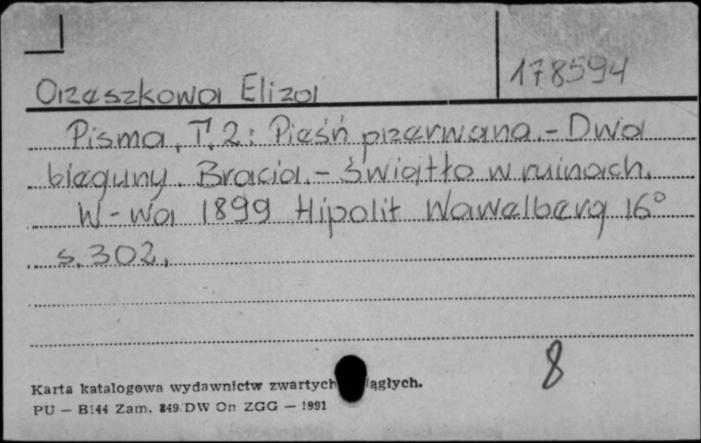 178594
Orzeszkowa Eliza
Pisma, T. 2: Pieśń przerwana. - Dwa
bieguny. Bracia. - Światło w ruinach.
W-wa 1899 Hipolit Wawelberg 16°
s. 302.
8
Karta katalogowa wydawnictw zwartych iągłych.
PU — B144 Zam. 849 DW Op ZGG — 1991